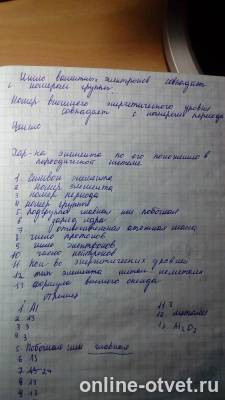 Число валентных электронов совпадает
с номером группы.
Номер внешнего энергетического уровня
совпадает с номером периода
Хар-ка элемента по его положению в
периодической системе
1. Символ элемента
2 номер элемента
3 номер периода
4 номер группы
5 подгруппа главная или побочная
6 заряд ядра
7 относительная атомная масса
8 число протонов
9 число электронов
10 число нейтронов
11 кол-во энергетических уровней
12 тип элемента метал неметалл
13 формула высшего оксида
1. Al
2. 13
3 3
4 3
5 главная
6 13
7
8 13
9 13
11 3
12 металл
13 Al2O3
online-otvet.ru